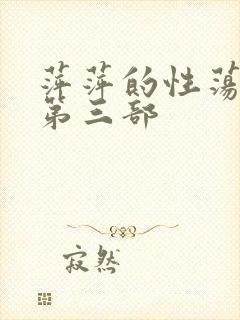 萍萍的性荡
第三部
寂然